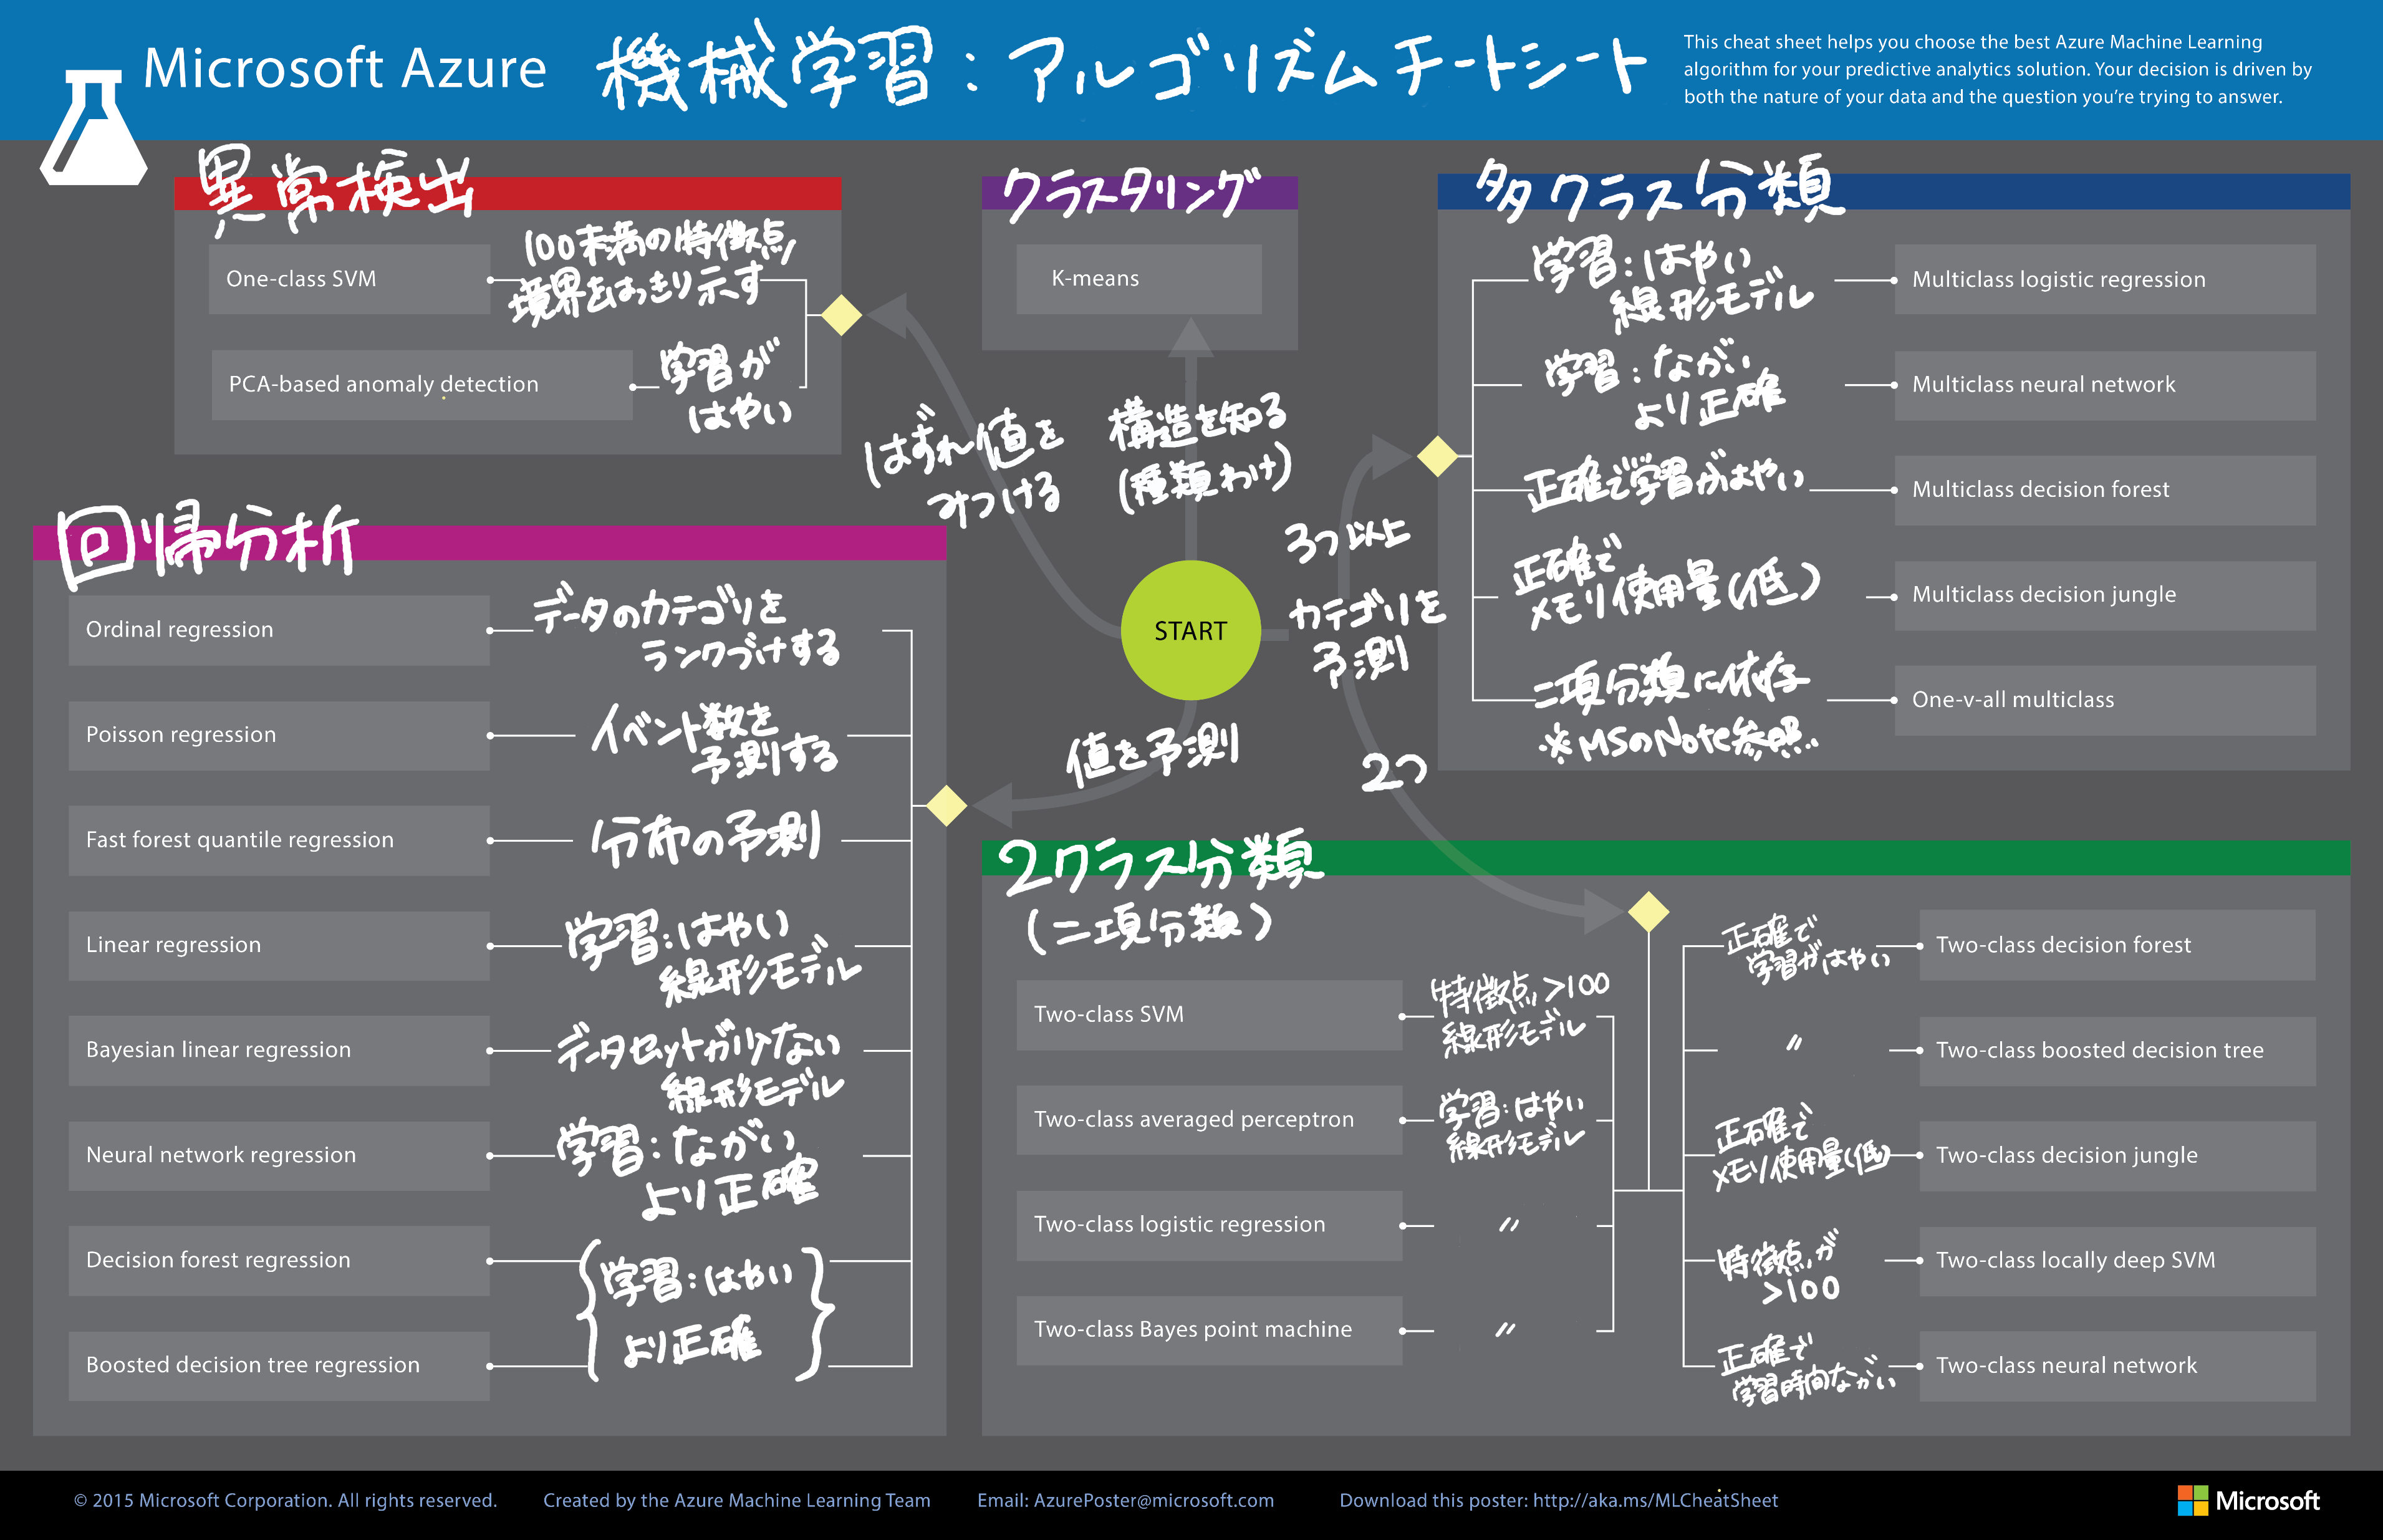 Microsoft Azure 機械学習：アルゴリズムチートシート
This cheat sheet helps you choose the best Azure Machine Learning
algorithm for your predictive analytics solution. Your decision is driven by
both the nature of your data and the question you're trying to answer.
異常検出
One-class SVM
100未満の特徴点
境界をはっきり示す
PCA-based anomaly detection
学習が
はやい
クラスタリング
K-means
多クラス分類
学習：はやい
線形モデル
Multiclass logistic regression
学習：ながい
より正確
Multiclass neural network
正確で学習がはやい
Multiclass decision forest
正確で
メモリ使用量(低)
Multiclass decision jungle
二項分類に依存
※MSのNote参照..
One-v-all multiclass
はずれ値を
みつける
構造を知る
(種類わけ)
START
3つ以上
カテゴリを
予測
2つ
値を予測
回帰分析
Ordinal regression
データのカテゴリを
ランクづけする
Poisson regression
イベント数を
予測する
Fast forest quantile regression
分布の予測
Linear regression
学習：はやい
線形モデル
Bayesian linear regression
データセットが少ない
線形モデル
Neural network regression
学習：ながい
より正確
Decision forest regression
Boosted decision tree regression
学習：はやい
より正確
2クラス分類
(二項分類)
Two-class SVM
特徴点>100
線形モデル
Two-class averaged perceptron
学習：はやい
線形モデル
Two-class logistic regression
〃
Two-class Bayes point machine
〃
正確で
学習がはやい
Two-class decision forest
〃
Two-class boosted decision tree
正確で
メモリ使用量(低)
Two-class decision jungle
特徴点が
>100
Two-class locally deep SVM
正確で
学習時間ながい
Two-class neural network
© 2015 Microsoft Corporation. All rights reserved.
Created by the Azure Machine Learning Team
Email: AzurePoster@microsoft.com
Download this poster: http://aka.ms/MLCheatSheet
Microsoft